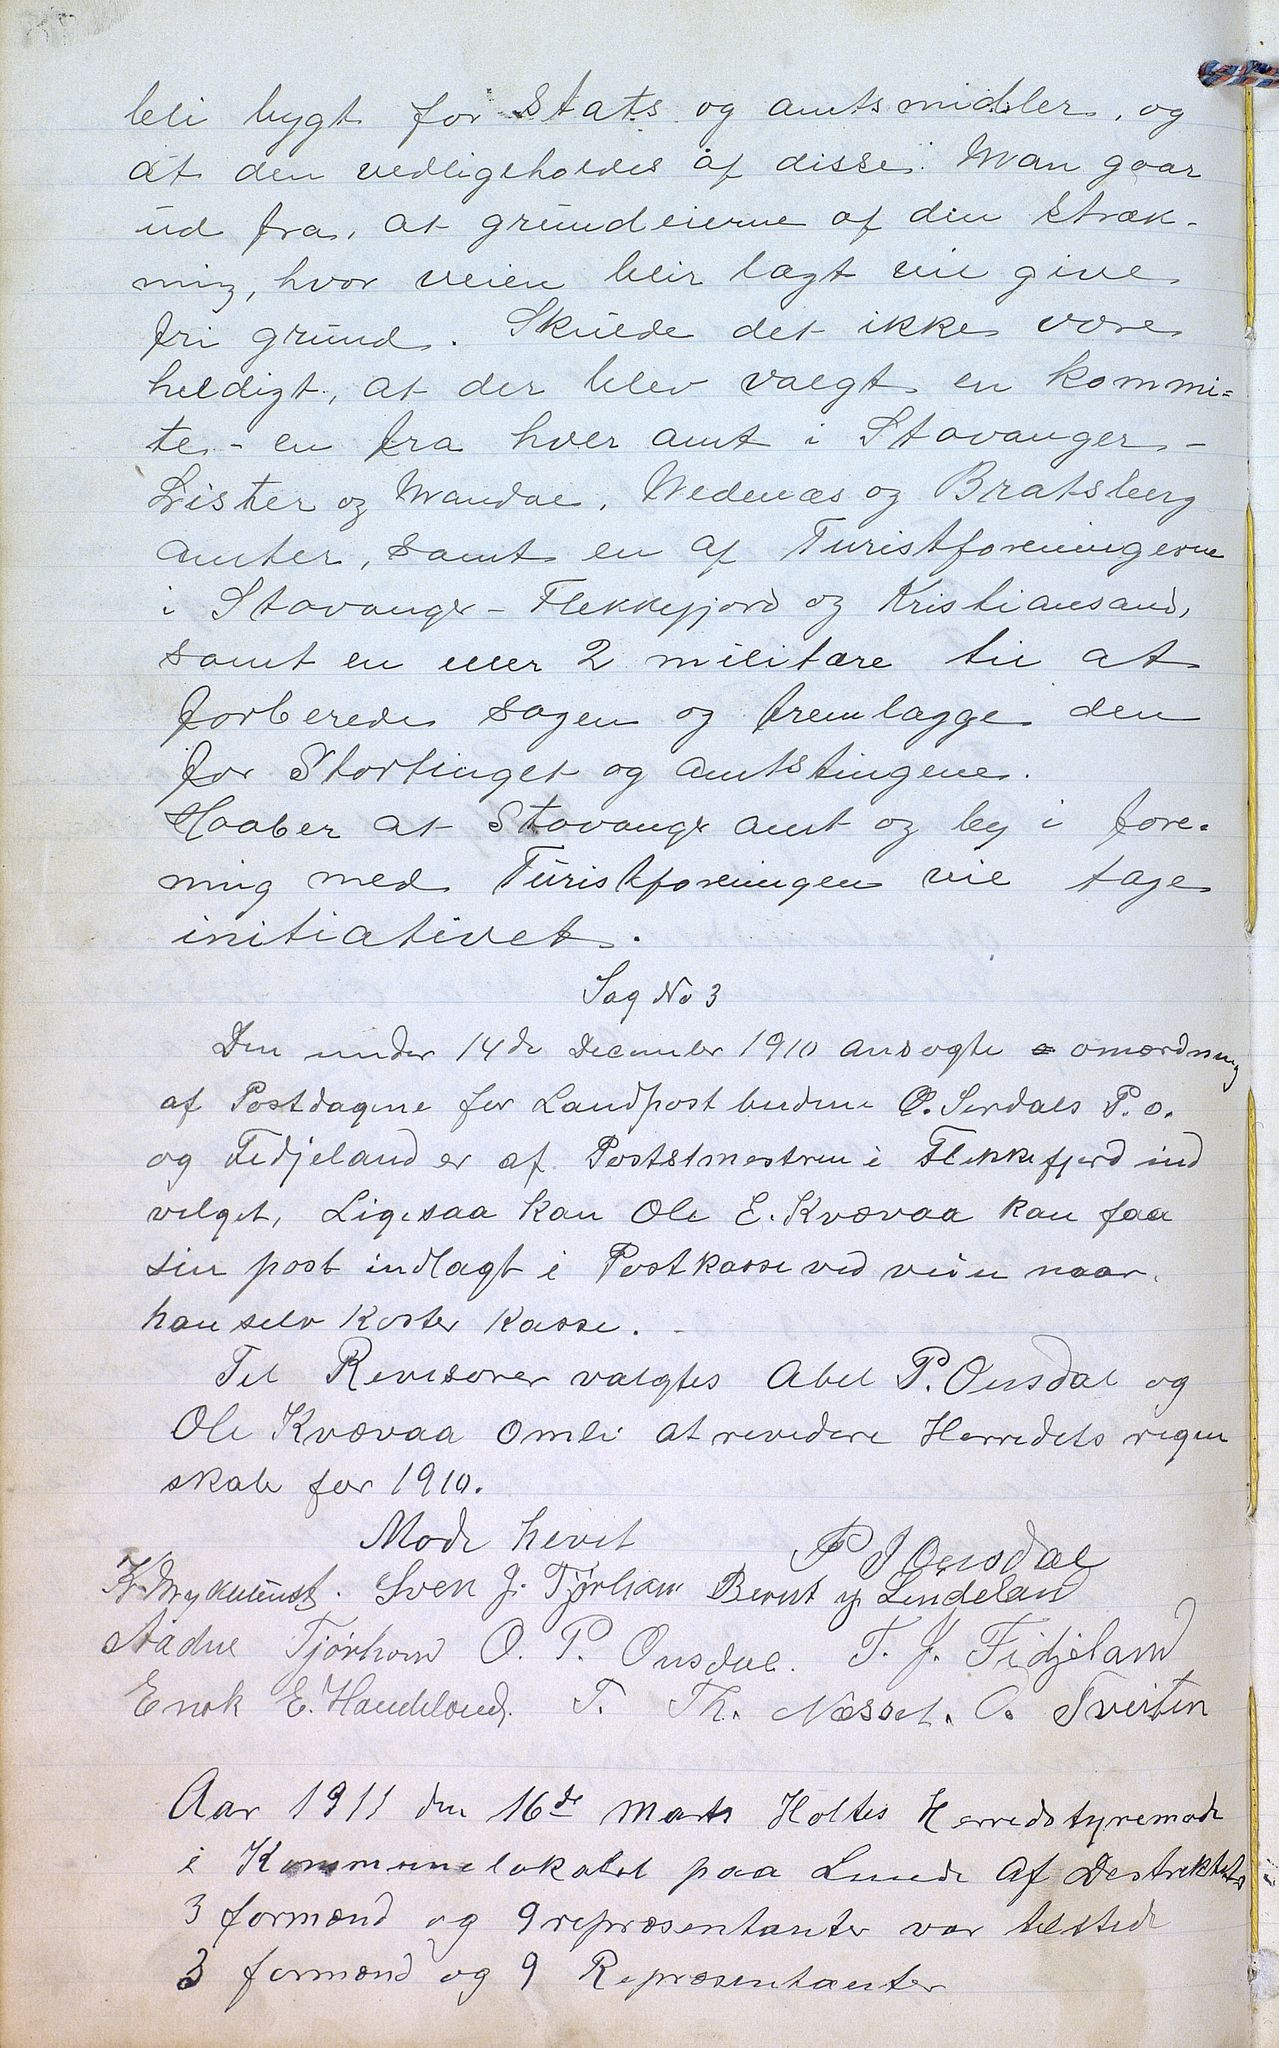 bli bygt for Stats og amtsmidler, og
at den vedligeholdes af disse. Man gaar
ud fra, at grundeierne af den stræk-
ning, hvor veien blir lagt vil give
fri grund. Skulde det ikke være
heldigt, at der blev valgt en kommi=
te - en fra hver amt i Stavanger -
Lister og Mandal, Nedenæs og Bratsberg
amter, samt en af Turistforeningerne
i Stavanger - Flekkefjord og Kristiansand,
samt en eller 2 militære til at
forberede sagen og fremlægge den
for Stortinget og amtstingene.
Haaber at Stavanger amt og by i fore-
ning med Turistforeningen vil tage
initiativet.
Sag No 3
Den under 14de December 1910 ansøgte omordning
af Postdagene for Landpostbudene Ø. Serdals P.o.
og Fidjeland er af Poststmestren i Flekkefjord ind
vilget, Ligesaa kan Ole E. Kvævaa kan faa
sin post indlagt i Postkasse ved veien naar
han selv koster kasse.
Til Revisorer valgtes Abel P. Ousdal og
Ole Kvævaa Omli at revidere Herredets regn
skab for 1910.
Møde hevet
P J Ousdal
Sven J. Tjørhom Bernt J. Lindeland
Aadne Tjørhom O. P. Ousdal. T. J. Fidjeland
Enok E. Haudeland. T. Th. Næsset. O. Tveiten
Aar 1911 den 16de Marts Holtes Herredstyremøde
i Kommunelokalet paa Lunde Af Destriktets
3 formænd og 9 repræsentanter var tilstede
3 formænd og 9 Repræsentanter